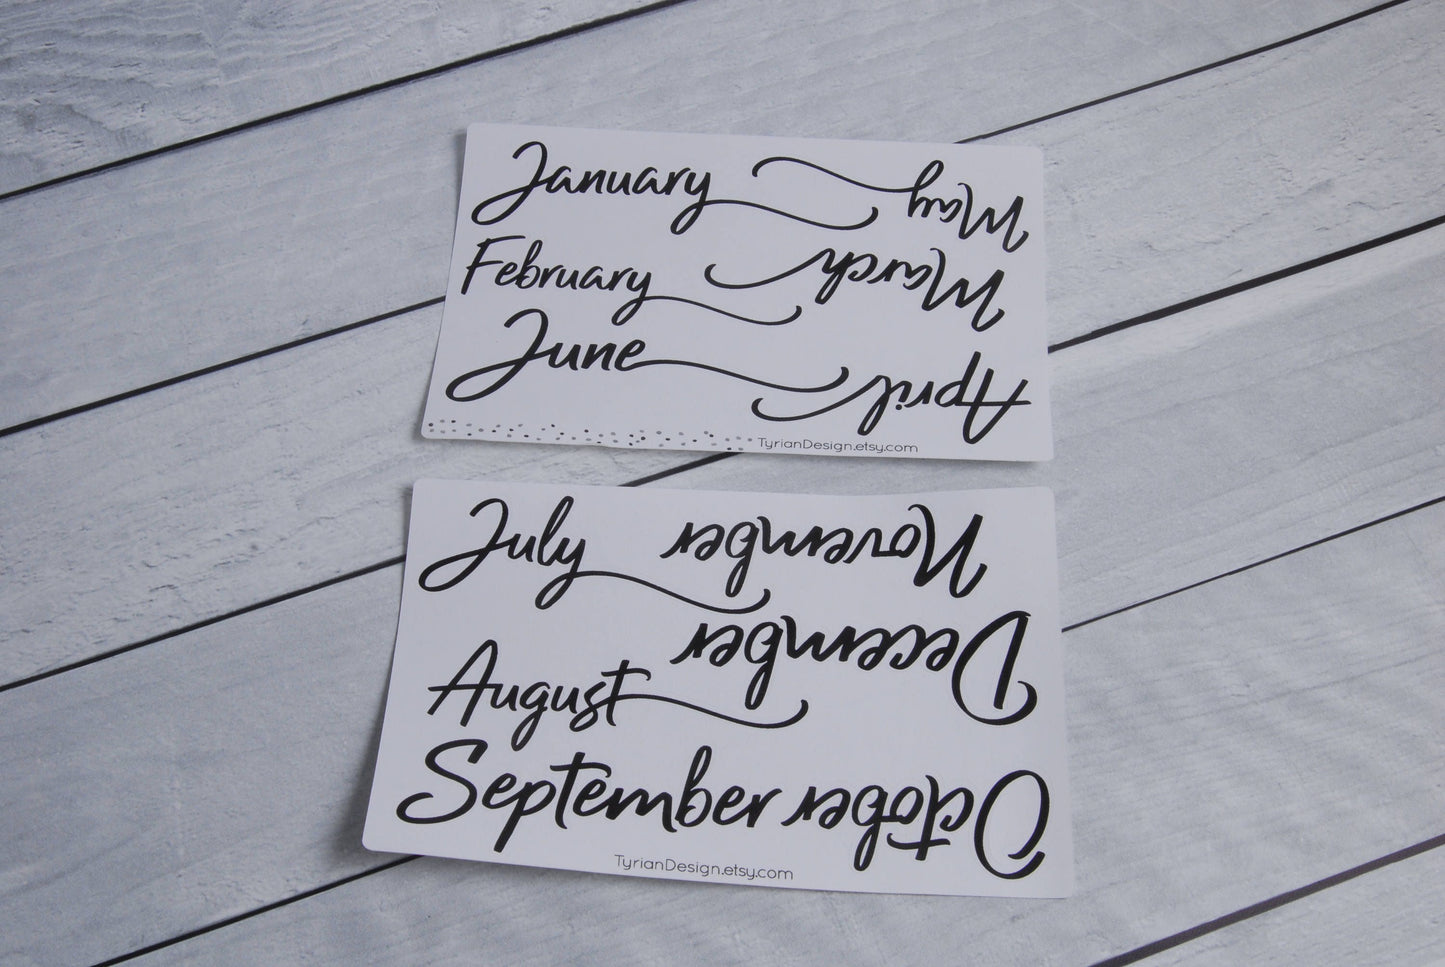 January
May
February
March
June
April
TyrianDesign.etsy.com
July
November
December
August
September
October
TyrianDesign.etsy.com